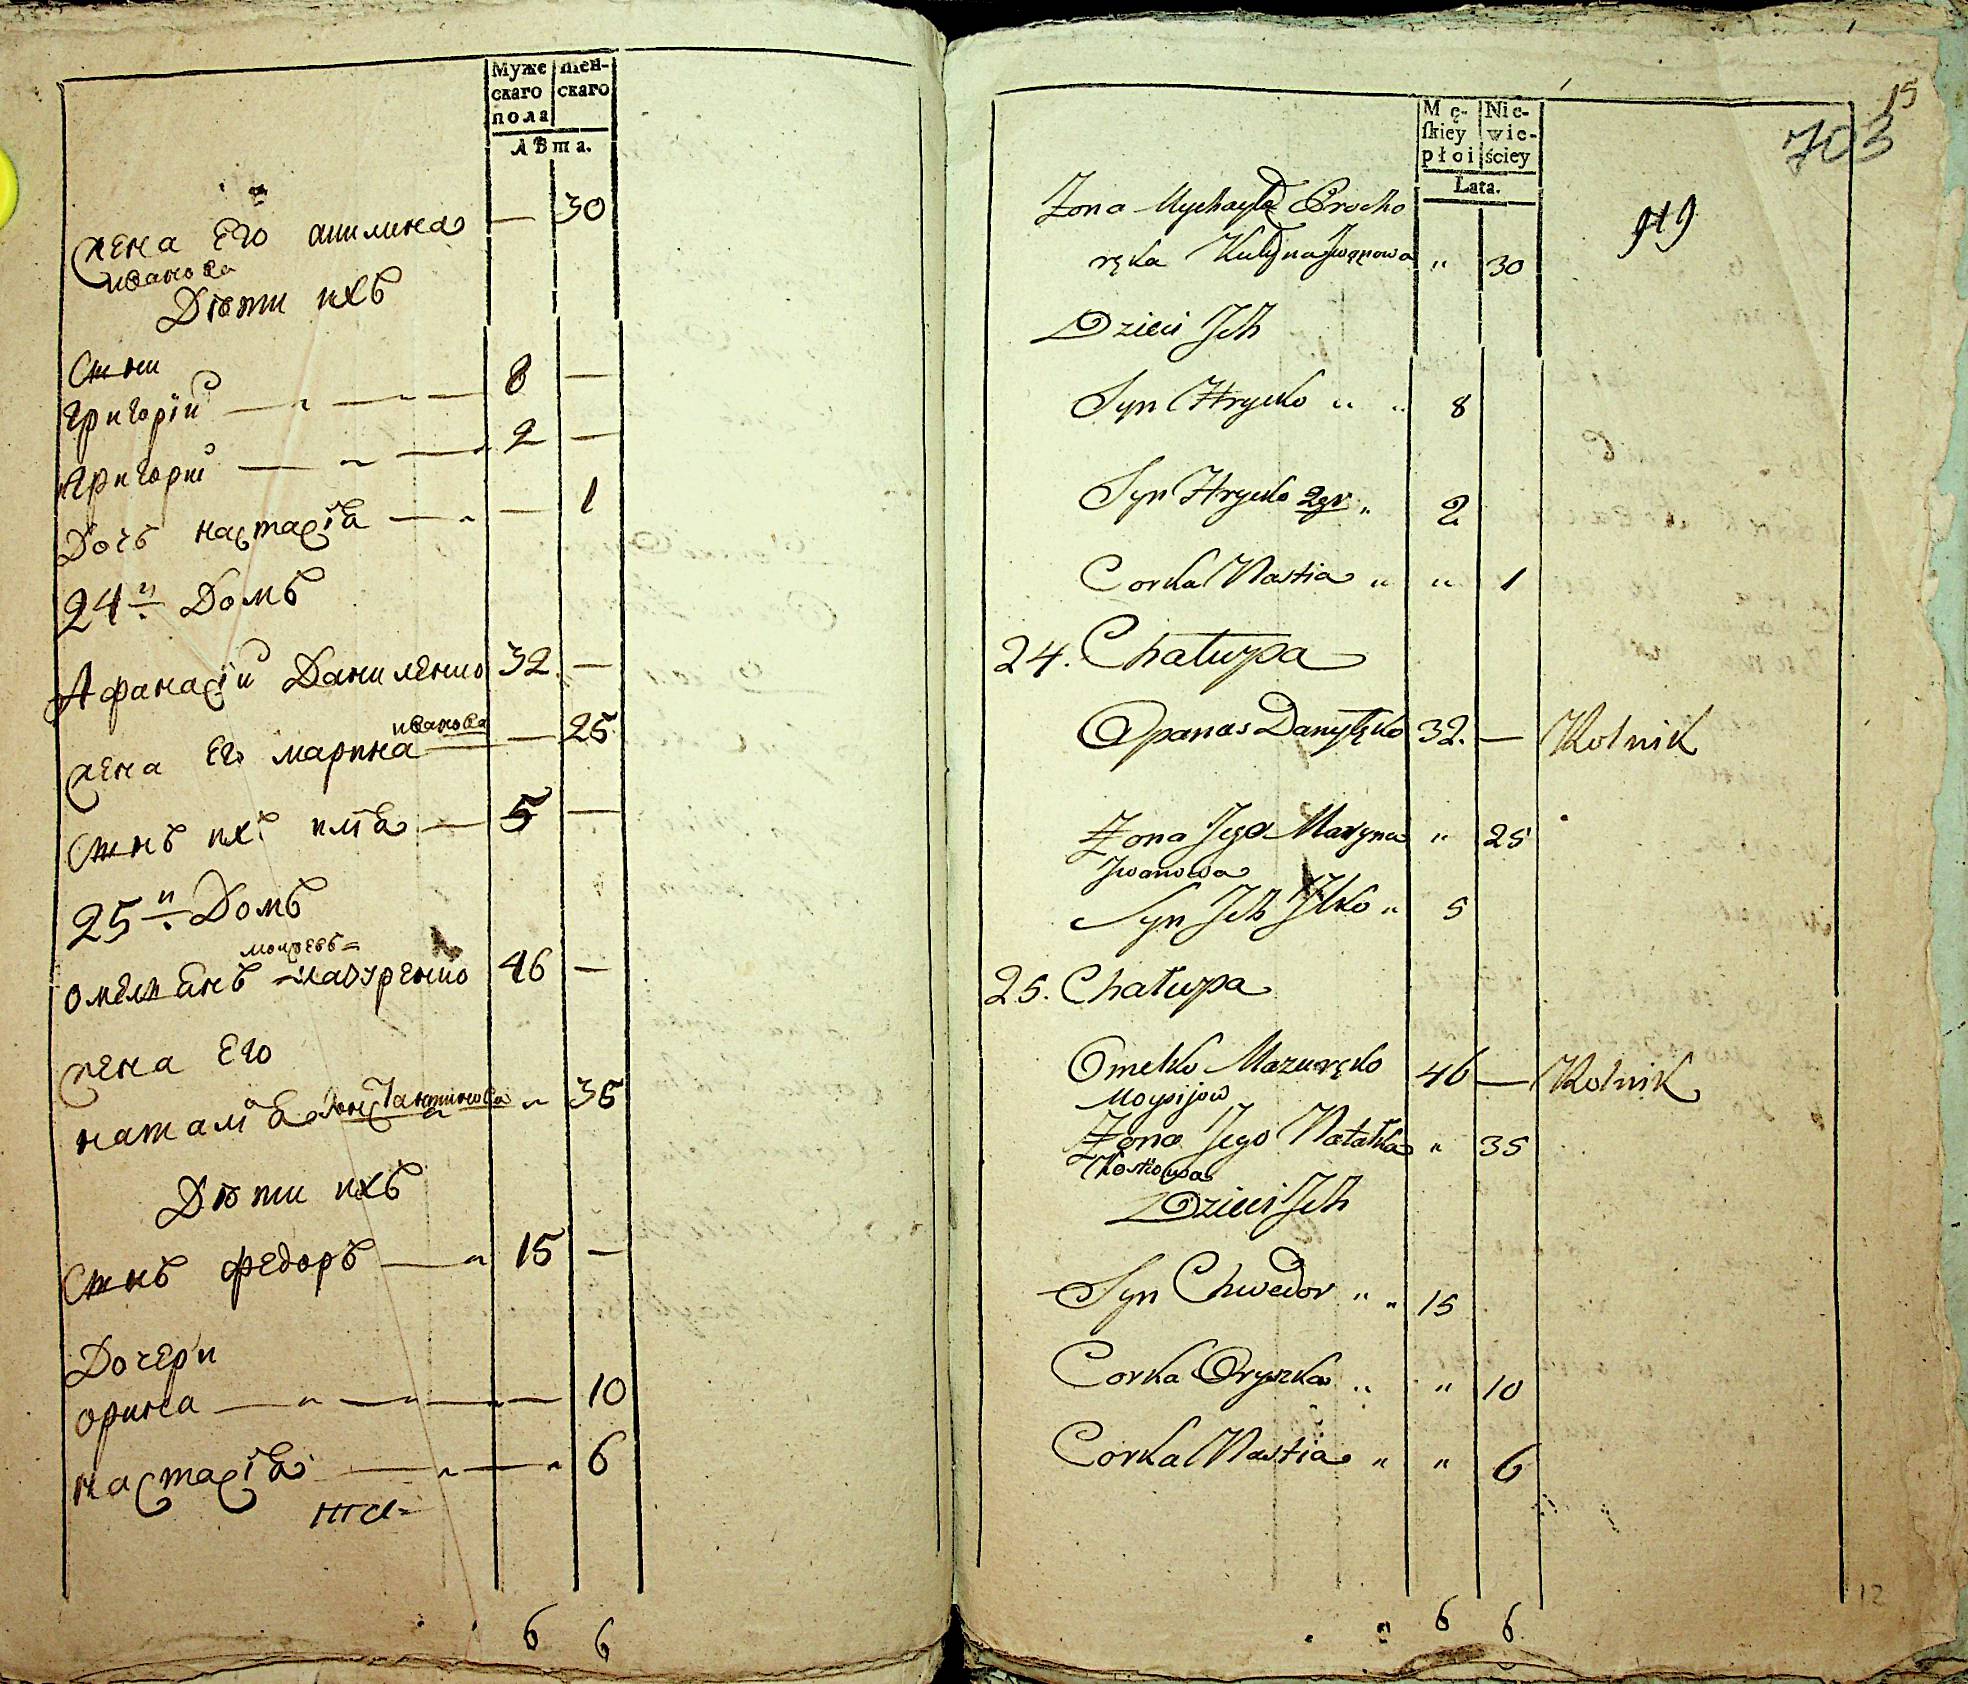 Муже
скаго
пола
жен-
скаго
лѣта.
жена его акилина — 30
иванова
Дѣти ихъ
Сыни
григорій — 8 —
григорій — 2 —
Дочь настасія — — 1
24й Домъ
Афанасій Даниленко 32 —
иванова
жена его марина — 25
Сынъ ихъ илія — 5 —
25й Домъ
моисеевъ
омелянъ мазуренко 46 —
жена его
наталія константинова 35
Дѣти ихъ
Сынъ федоръ — 15 —
Дочери
орина — 10
настасія — 6
6 6
15
703
Mę-
skiey
płci
Nie-
wie-
ściey
Lata.
Zona Mychayła Procho
ręka Kulyna Jwanowa " 30
Dzieci Jch
Syn Hryćko " " 8
Syn Hryćko 2gi " 2
Corka Nastia " " 1
24. Chałupa
Opanas Danylęko 32. — Rolnik
Zona Jego Maryna " 25
Jwanowa
Syn Jch Jlko " 5
25. Chałupa
Omelko Mazuręko 46 — Rolnik
Moysijow
Zona Jego Natałka " 35
Kostiowa
Dzieci Jch
Syn Chwedor " " 15
Corka Oryszka " " 10
Corka Nastia " " 6
6 6
12